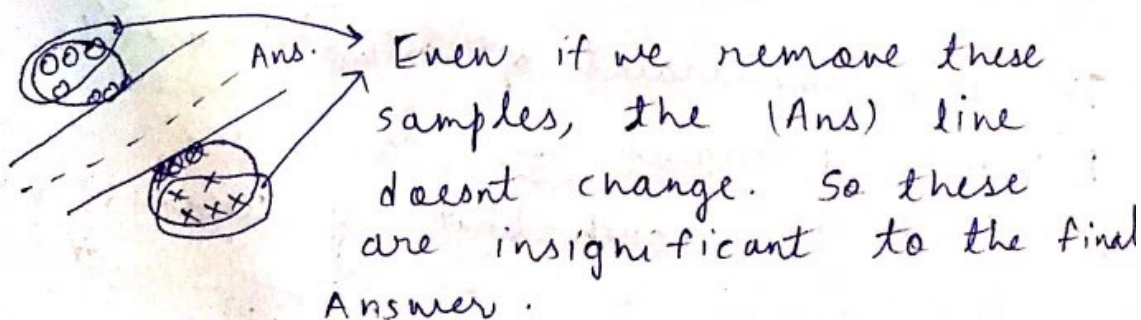 Ans. Even if we remove these
samples, the (Ans) line
doesnt change. So these
are insignificant to the final
Answer.